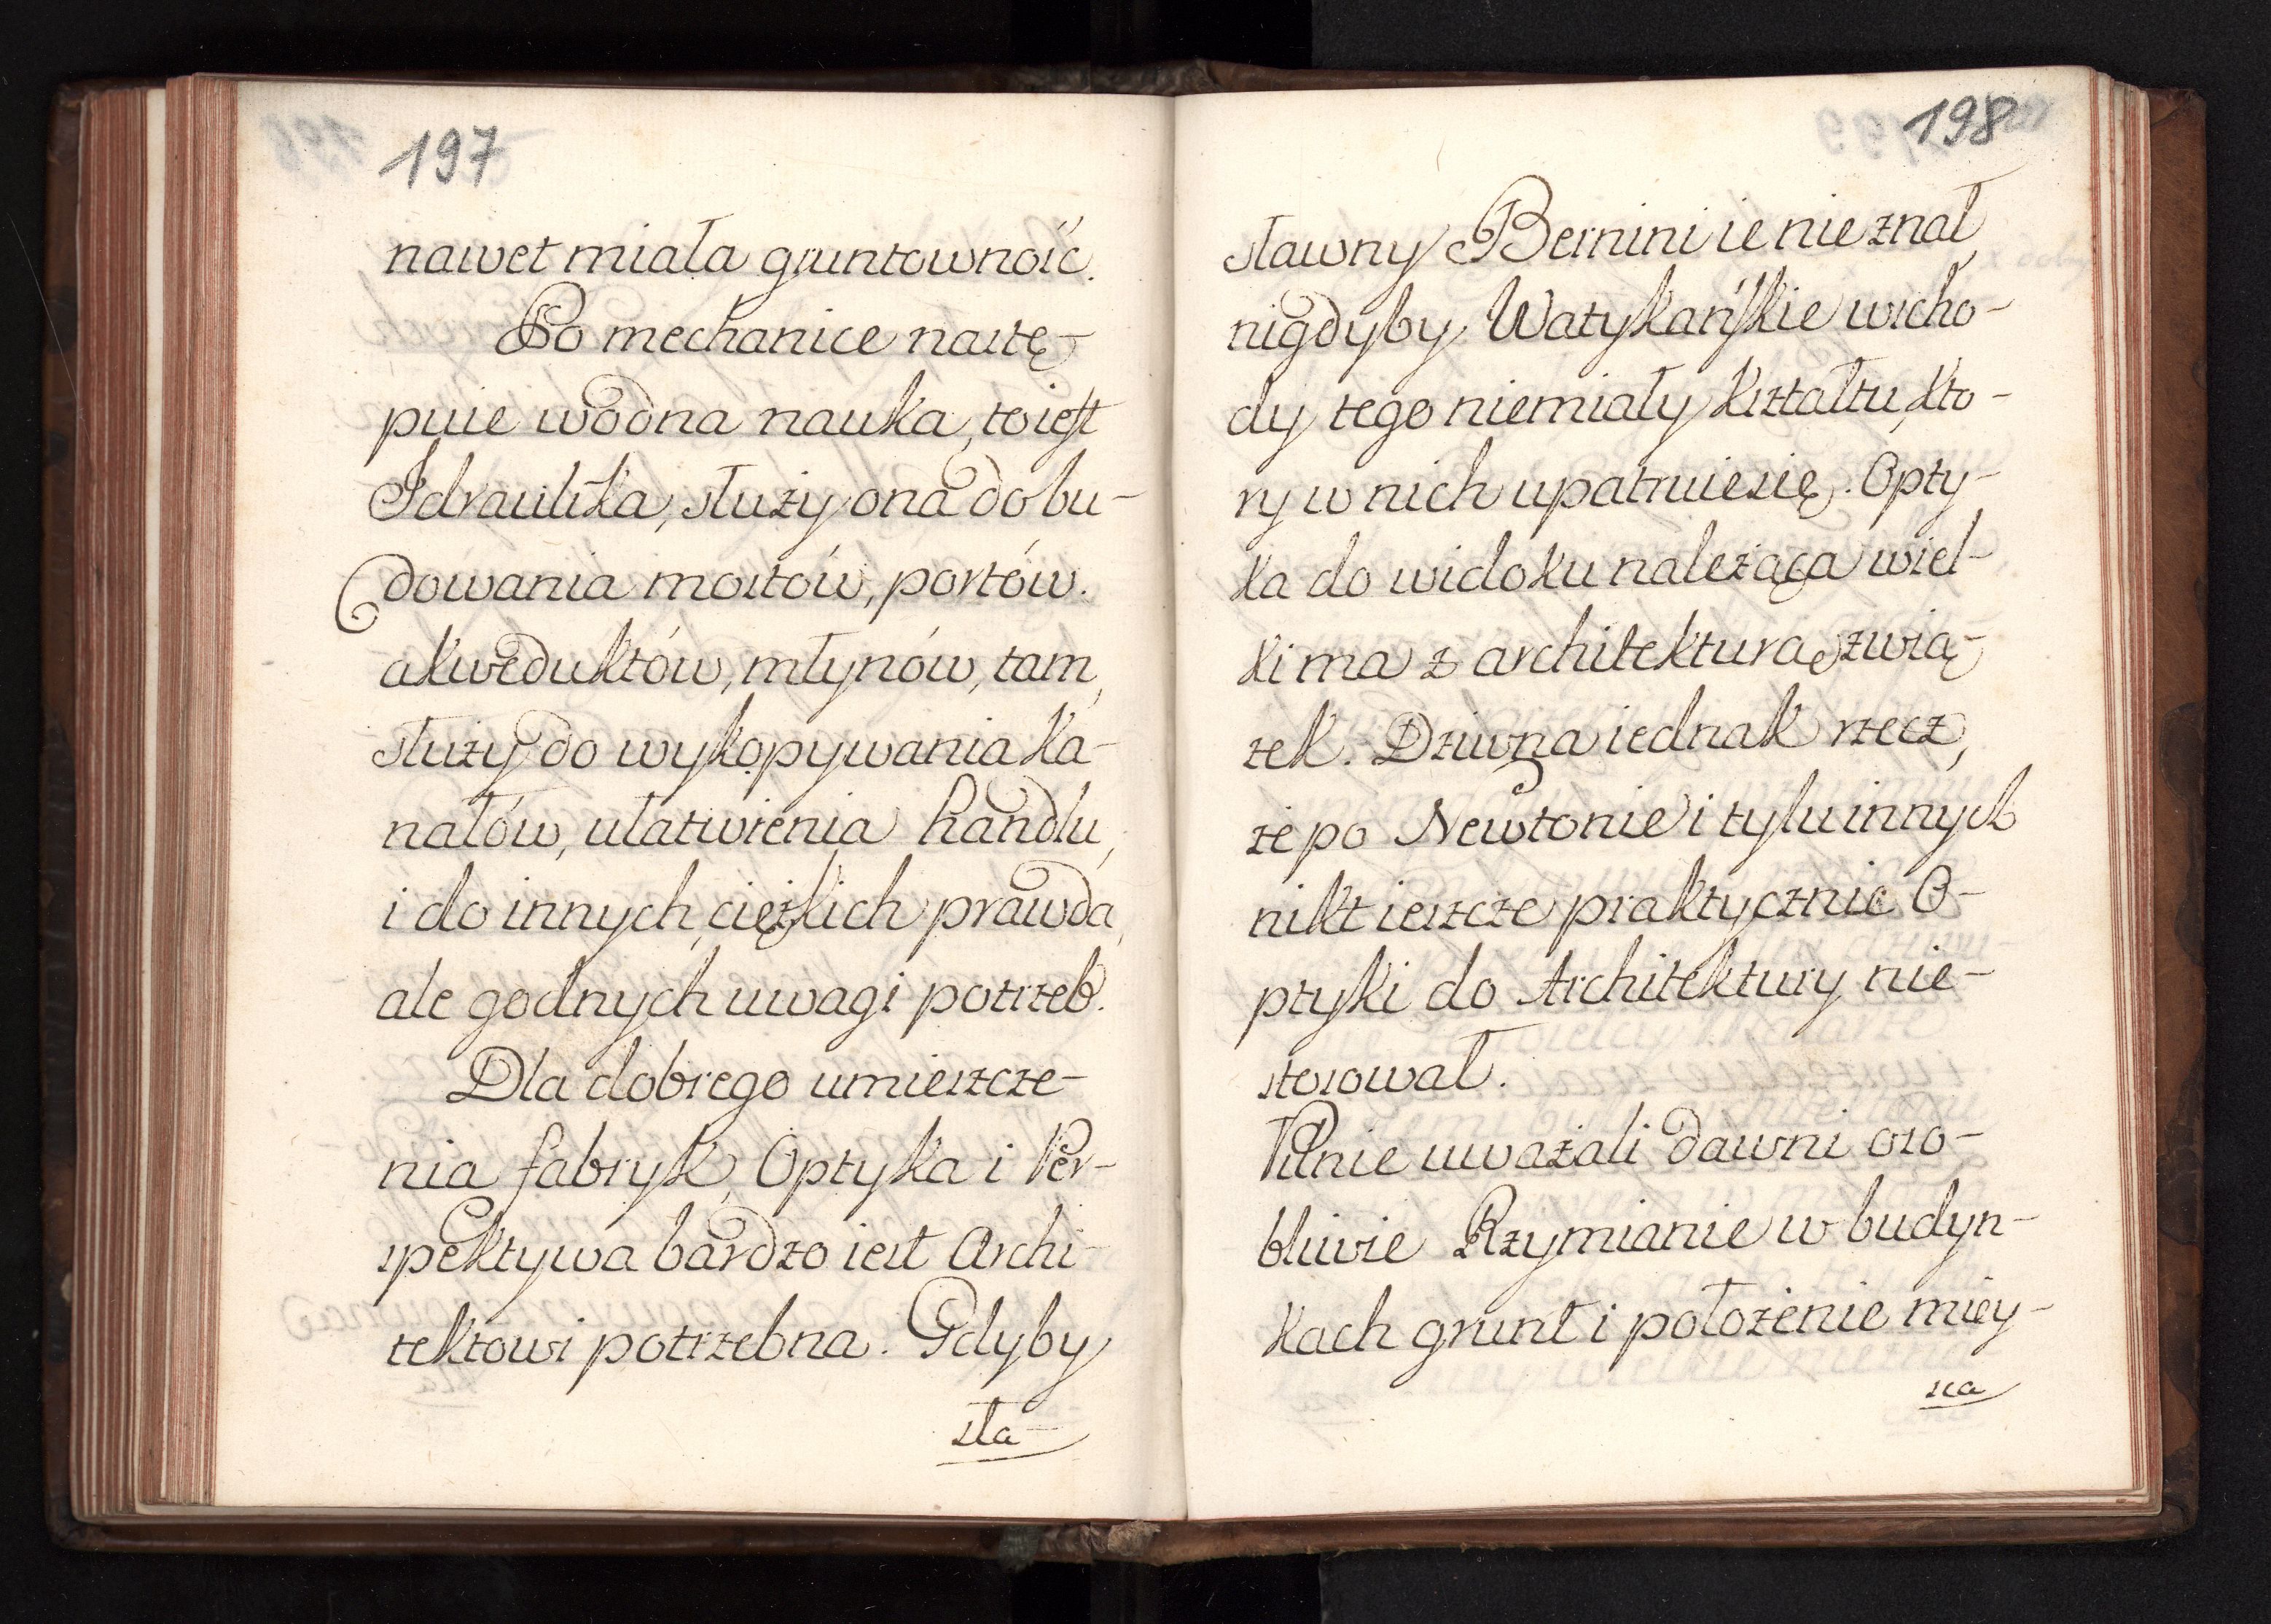 197
nawet miała gruntowność.
Po mechanice nastę-
puie wodna nauka, toiest
Idraulika, służy ona do bu-
dowania mostów, portów.
akweduktów, młynów, tam,
służy do wykopywania ka-
nałów, ułatwienia handlu,
i do innych, ciężkich prawda,
ale godnych uwagi potrzeb.
Dla dobrego umieszcze-
nia fabryk, Optyka i Per-
spektywa bardzo iest Archi-
tektowi potrzebna. Gdyby
sła-
198
sławny Bernini ie nie znał,
nigdyby Watykańskie wscho-
dy tego niemiały kształtu, kto-
ry w nich upatruiesię. Opty-
ka do widoku należąca wiel-
ki ma z architekturą zwią-
zek. Dziwna iednak rzecz,
że po Newtonie i tylu innych
nikt ieszcze praktycznie O-
ptyki do Architektury nie-
stosował.
Pilnie uważali dawni oso-
bliwie Rzymianie w budyn-
kach grunt i położenie miey-
sca